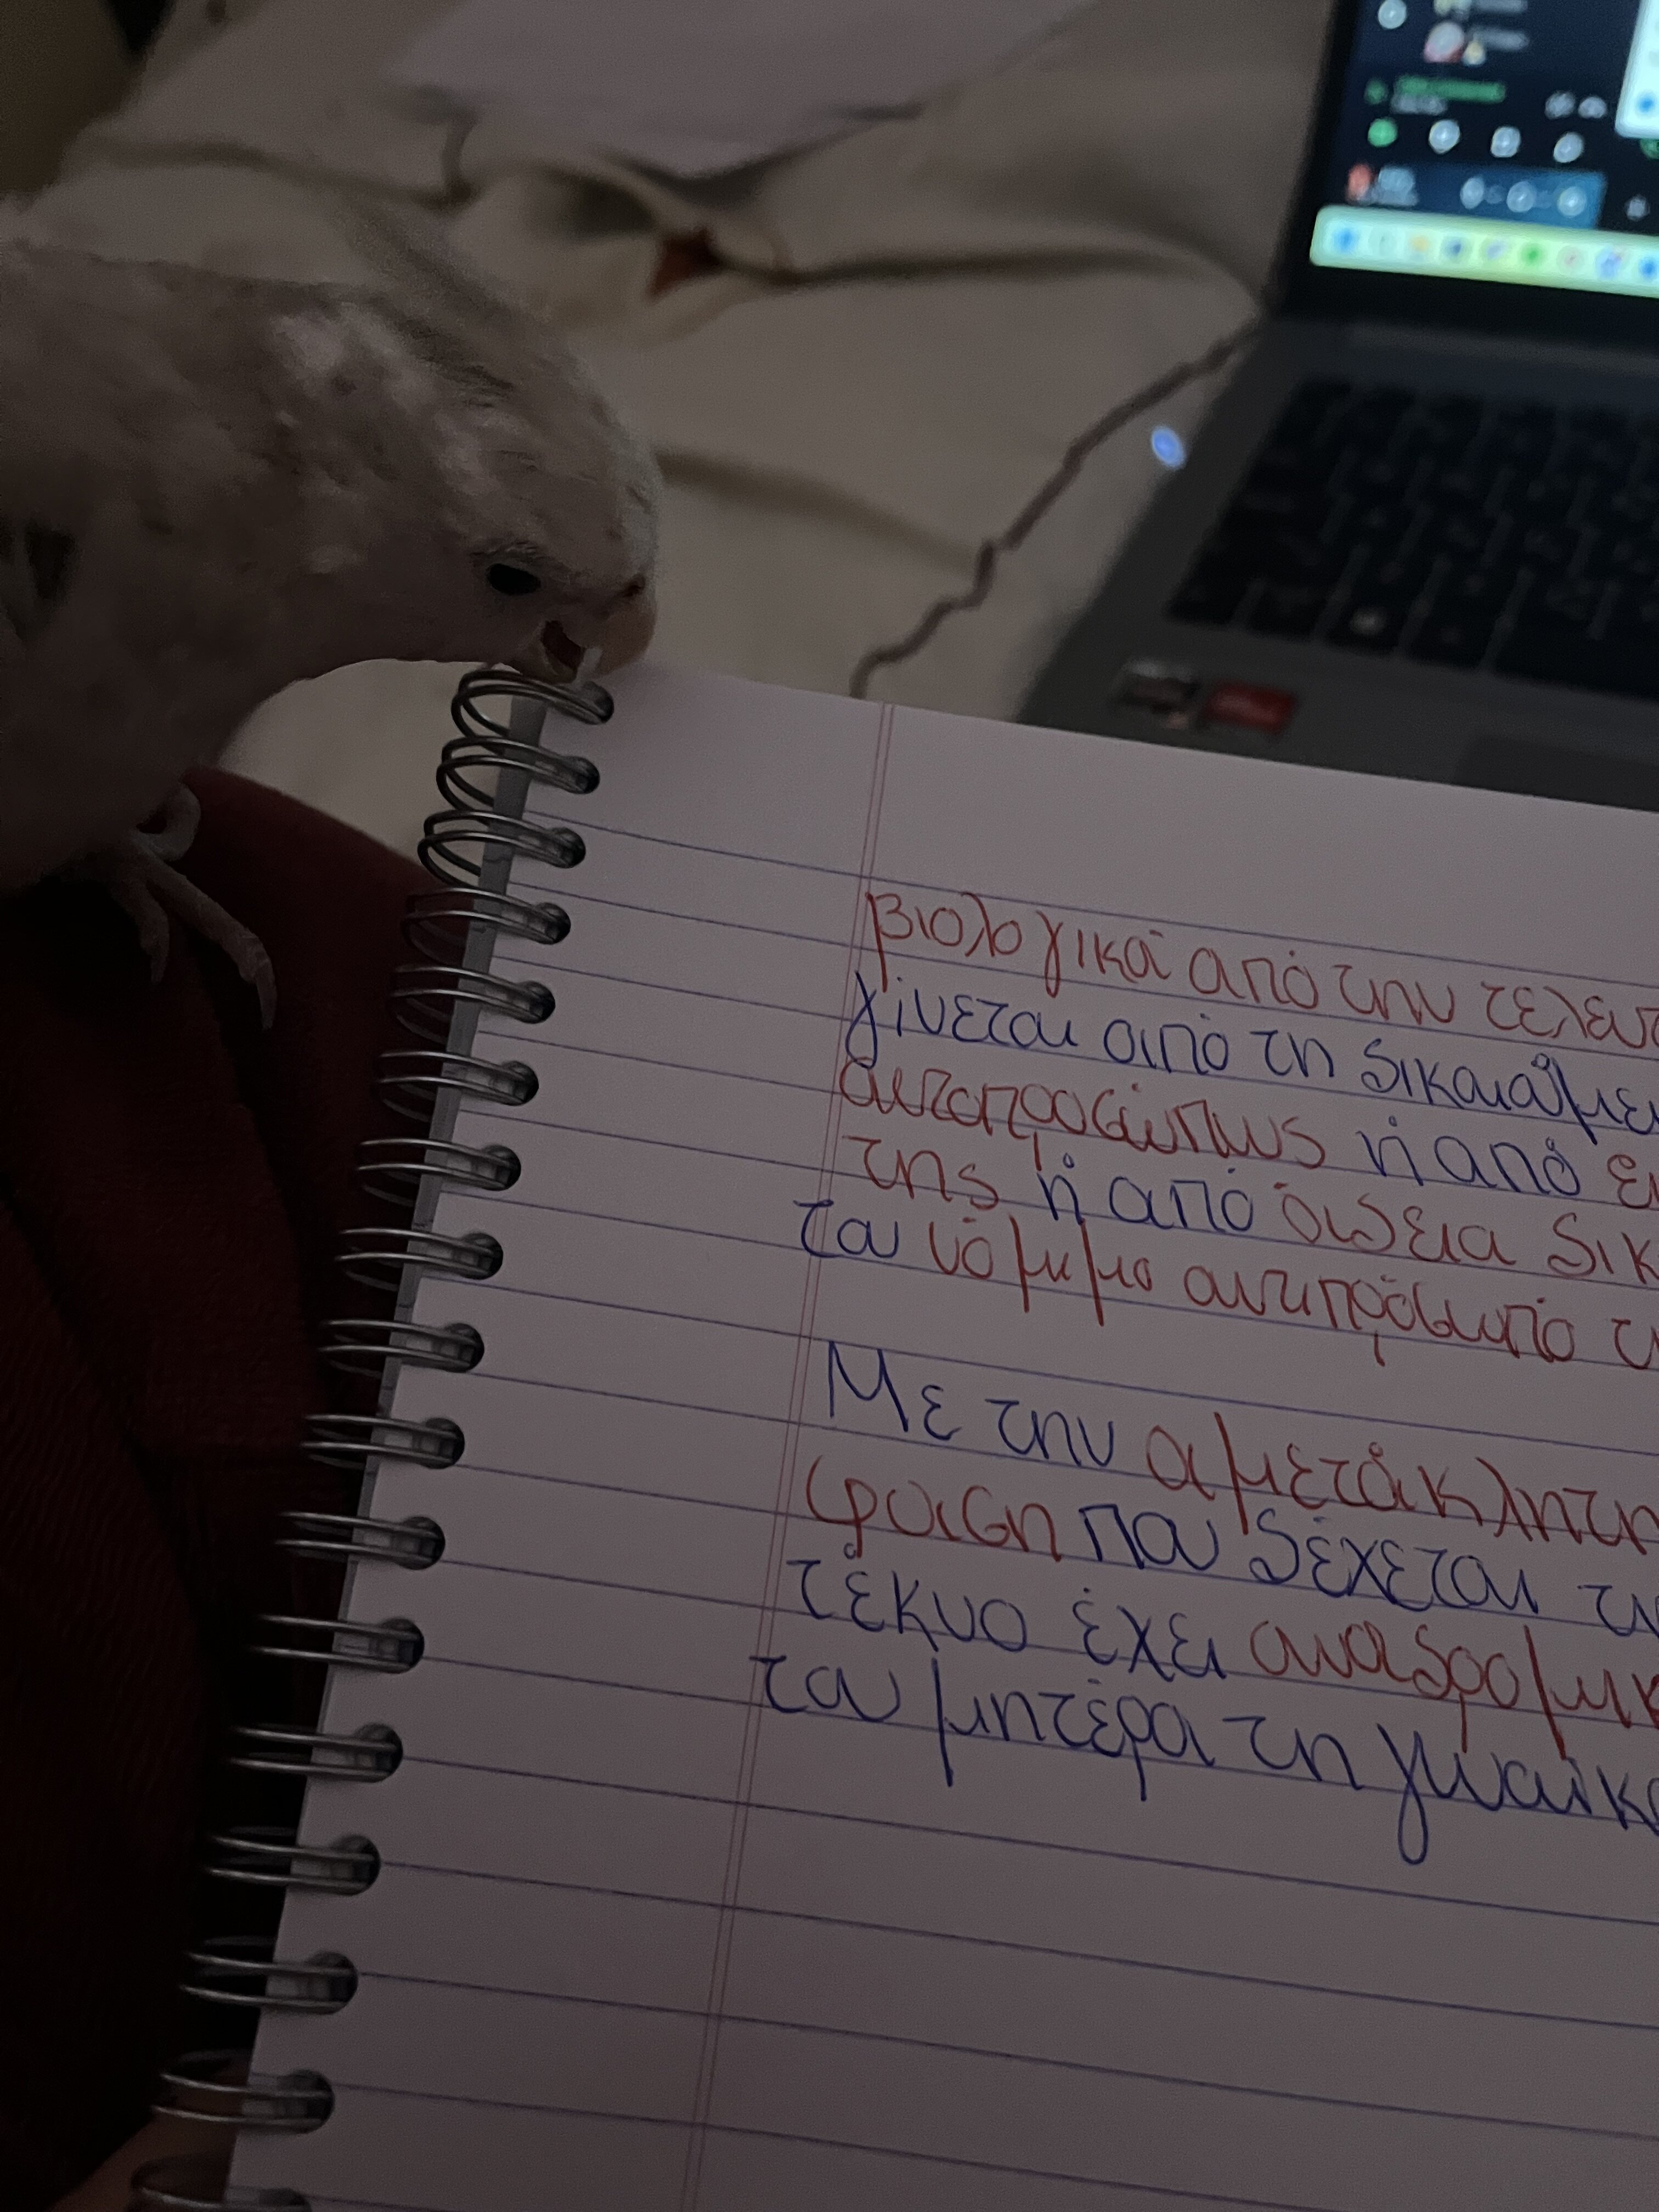 βιολογικά από την τελευτ
γίνεται από τη δικαιάμε
αυτοπροσώπως ή από ει
της ή από όιδεια δικ
του νόμιμο αντιπρόσωπό τ
Με την αμετάκλητη
φαση που δέχεται τη
τέκνο έχει αναδρομικ
του μητέρα τη γυναίκα